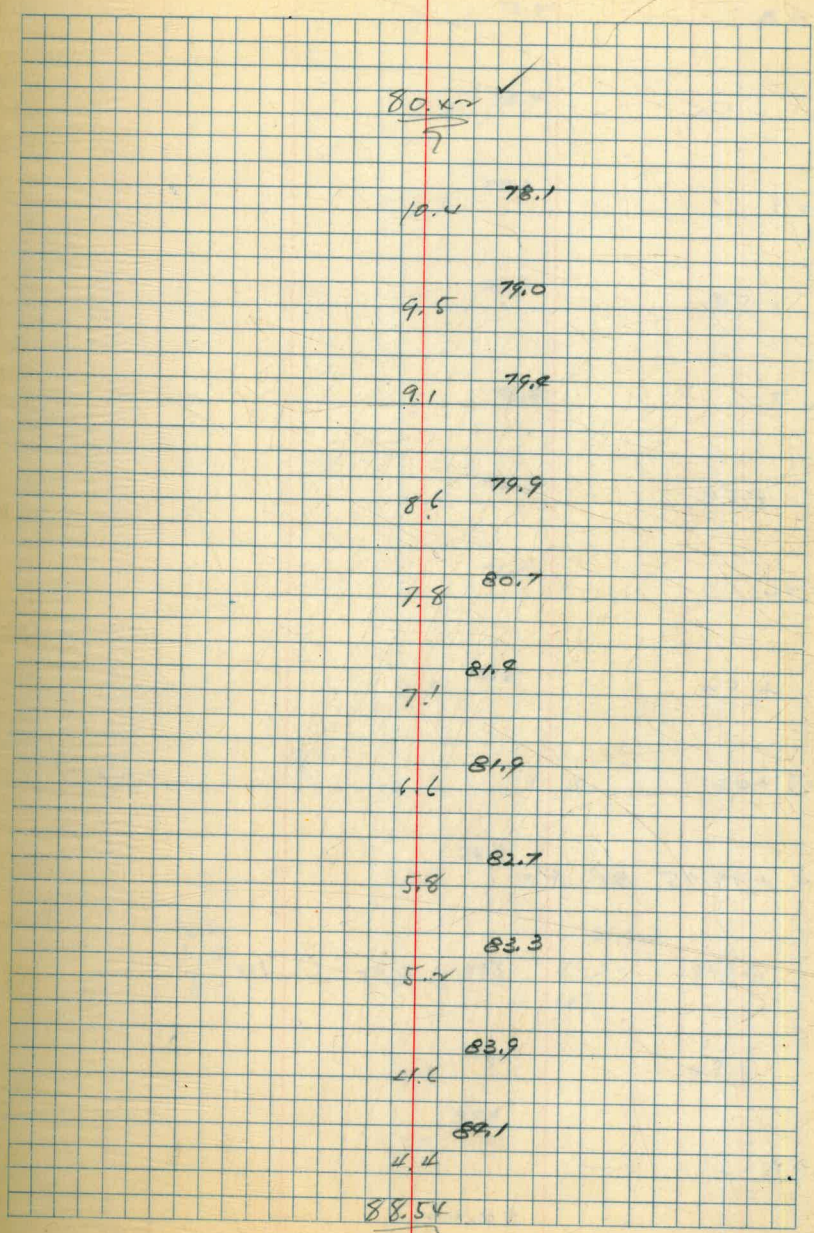 10.4 78.1
9.5 79.0
9.1 79.4
8.6 79.9
7.8 80.7
7.1 81.4
6.6 81.9
5.8 82.7
5.2 83.3
4.6 83.9
4.4 84.1
88.54